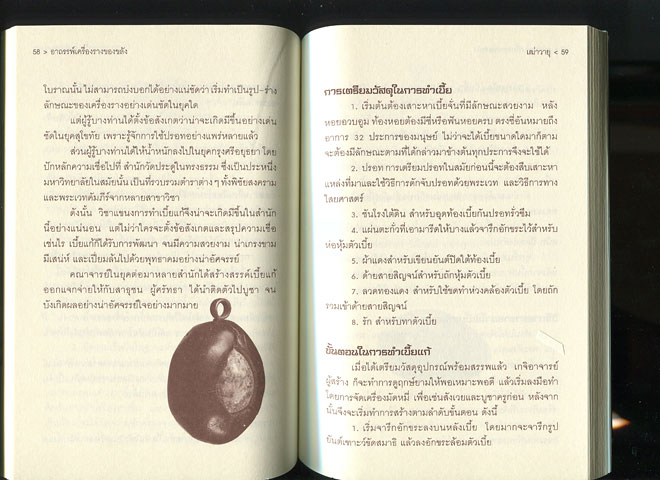 58 > อาถรรพ์เครื่องรางของขลัง
โบราณนั้น ไม่สามารถบ่งบอกได้อย่างแน่ชัดว่า เริ่มทำเป็นรูป-ร่าง
ลักษณะของเครื่องรางอย่างเด่นชัดในยุคใด
แต่ผู้รู้บางท่านได้ตั้งข้อสังเกตว่าน่าจะเกิดมีขึ้นอย่างเด่น
ชัดในยุคสุโขทัย เพราะรู้จักการใช้ปรอทอย่างแพร่หลายแล้ว
ส่วนผู้รู้บางท่านได้ให้น้ำหนักลงไปในยุคกรุงศรีอยุธยา โดย
ปักหลักความเชื่อไปที่ สำนักวัดประดู่ในทรงธรรม ซึ่งเป็นประหนึ่ง
มหาวิทยาลัยในสมัยนั้น เป็นที่รวบรวมตำราต่าง ๆ ทั้งพิชัยสงคราม
และพระเวทคัมภีร์จากหลายสาขาวิชา
ดังนั้น วิชาแขนงการทำเบี้ยแก้จึงน่าจะเกิดมีขึ้นในสำนัก
นี้อย่างแน่นอน แต่ไม่ว่าใครจะตั้งข้อสังเกตและสรุปความเชื่อ
เช่นไร เบี้ยแก้ก็ได้รับการพัฒนา จนมีความสวยงาม น่าเกรงขาม
มีเสน่ห์ และเปี่ยมล้นไปด้วยพุทธาคมอย่างน่าอัศจรรย์
คณาจารย์ในยุคต่อมาหลายสำนักได้สร้างสรรค์เบี้ยแก้
ออกแจกจ่ายให้กับสาธุชน ผู้ศรัทธา ได้นำติดตัวไปบูชา จน
บังเกิดผลอย่างน่าอัศจรรย์ใจอย่างมากมาย
เฒ่าวายุ < 59
การเตรียมวัสดุในการทำเบี้ย
1. เริ่มต้นต้องเสาะหาเบี้ยจั่นที่มีลักษณะสวยงาม หลัง
หอยอวบอูม ท้องหอยต้องมีซี่หรือฟันหอยครบ ตรงซี่อันหมายถึง
อาการ 32 ประการของมนุษย์ ไม่ว่าจะได้เบี้ยขนาดใดมาก็ตาม
จะต้องมีลักษณะตามที่ได้กล่าวมาข้างต้นทุกประการจึงจะใช้ได้
2. ปรอท การเตรียมปรอทในสมัยก่อนนี้จะต้องสืบเสาะหา
แหล่งที่มาและใช้วิธีการดักจับปรอทด้วยพระเวท และวิธีการทาง
ไสยศาสตร์
3. ชันโรงใต้ดิน สำหรับอุดท้องเบี้ยกันปรอทรั่วซึม
4. แผ่นตะกั่วที่เอามารีดให้บางแล้วจารึกอักขระไว้สำหรับ
ห่อหุ้มตัวเบี้ย
5. ผ้าแดงสำหรับเขียนยันต์ปิดใต้ท้องเบี้ย
6. ด้ายสายสิญจน์สำหรับถักหุ้มตัวเบี้ย
7. ลวดทองแดง สำหรับใช้ขดทำห่วงคล้องตัวเบี้ย โดยถัก
รวมเข้าด้ายสายสิญจน์
8. รัก สำหรับทาตัวเบี้ย
ขั้นตอนในการทำเบี้ยแก้
เมื่อได้เตรียมวัสดุอุปกรณ์พร้อมสรรพแล้ว เกจิอาจารย์
ผู้สร้าง ก็จะทำการดูฤกษ์ยามให้พอเหมาะพอดี แล้วเริ่มลงมือทำ
โดยการจัดเครื่องมัดหมี่ เพื่อเซ่นสังเวยและบูชาครูก่อน หลังจาก
นั้นจึงจะเริ่มทำการสร้างตามลำดับขั้นตอน ดังนี้
1. เริ่มจารึกอักขระลงบนหลังเบี้ย โดยมากจะจารึกรูป
ยันต์เฑาะว์ขัดสมาธิ แล้วลงอักขระล้อมตัวเบี้ย